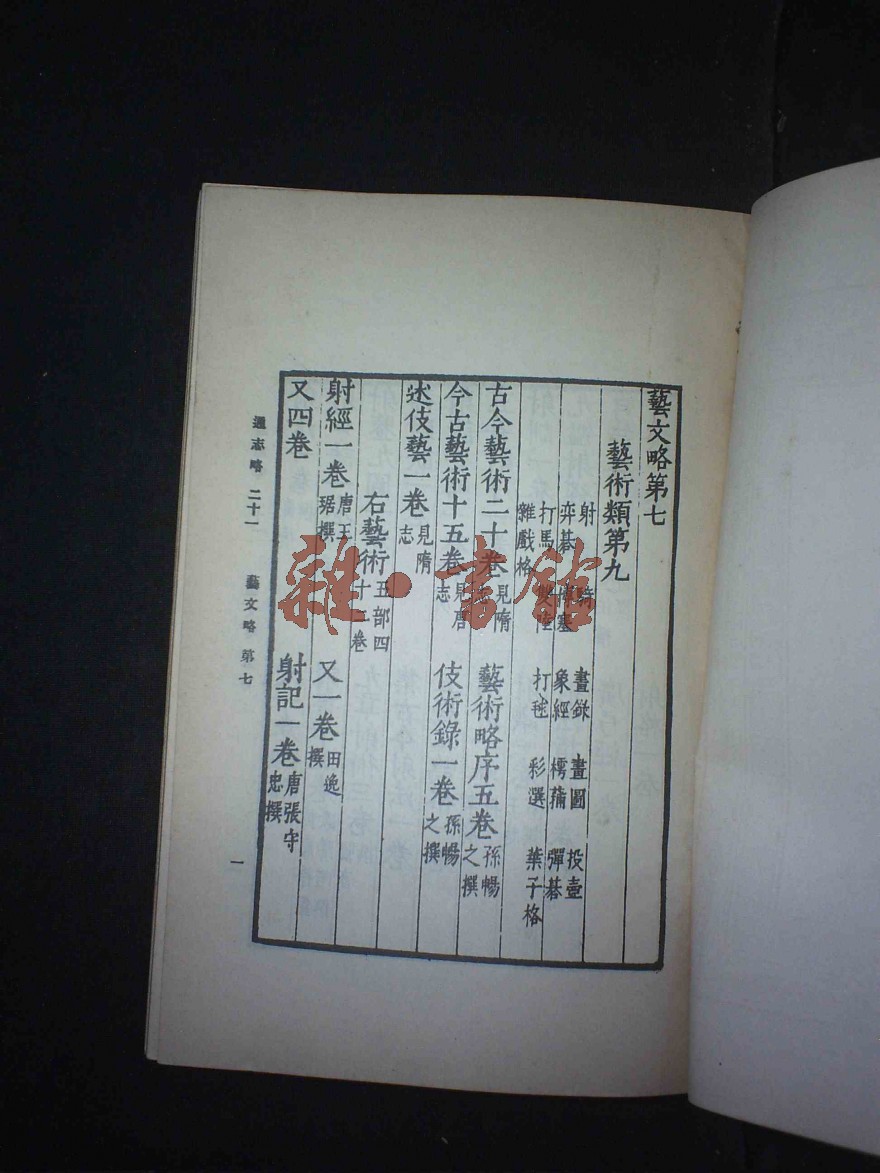 藝文略第七
藝術類第九
射 騎 畫錄 畫圖 投壺
弈碁 博塞 象經 樗蒱 彈碁
打馬 雙陸 打毬 彩選 葉子格
雜戲格
古今藝術二十卷 見隋志 藝術略序五卷 孫暢之撰
今古藝術十五卷 見唐志 伎術錄一卷 孫暢之撰
述伎藝一卷 見隋志
右藝術 五部四十二卷
射經一卷 唐王琚撰 又一卷 田逸撰
又四卷 射記一卷 唐張守忠撰
通志略 二十一 藝文略 第七 一
雜·書館